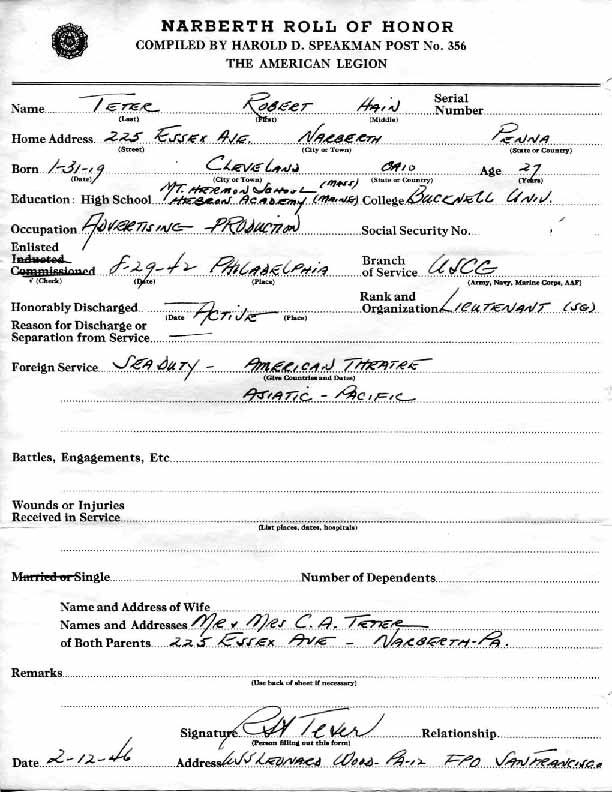 NARBERTH ROLL OF HONOR
COMPILED BY HAROLD D. SPEAKMAN POST No. 356
THE AMERICAN LEGION
Name TETER ROBERT HAIN Serial Number
(Last) (First) (Middle)
Home Address 225 ESSEX AVE. NARBERTH PENNA
(Street) (City or Town) (State or Country)
Born 1-31-19 CLEVELAND OHIO Age 27
(Date) (City or Town) (State or Country) (Years)
MT. HERMON SCHOOL (MASS)
Education: High School HEBRON ACADEMY (MAINE) College BUCKNELL UNIV.
Occupation ADVERTISING PRODUCTION Social Security No.
Enlisted
Inducted
Commissioned 8-29-42 PHILADELPHIA Branch of Service USCG
√ (Check) (Date) (Place) (Army, Navy, Marine Corps, AAF)
Honorably Discharged — ACTIVE — Rank and Organization LIEUTENANT (SG)
(Date (Place)
Reason for Discharge or
Separation from Service —
Foreign Service SEA DUTY - AMERICAN THEATRE
(Give Countries and Dates)
ASIATIC - PACIFIC
Battles, Engagements, Etc
Wounds or Injuries
Received in Service
(List places, dates, hospitals)
Married or Single Number of Dependents
Name and Address of Wife
Names and Addresses MR & MRS C. A. TETER
of Both Parents 225 ESSEX AVE - NARBERTH-PA.
Remarks
(Use back of sheet if necessary)
Signature RH Teter Relationship
(Person filling out this form)
Date 2-12-46 Address USS LEONARD WOOD - PA-12 FPO SAN FRANCISCO